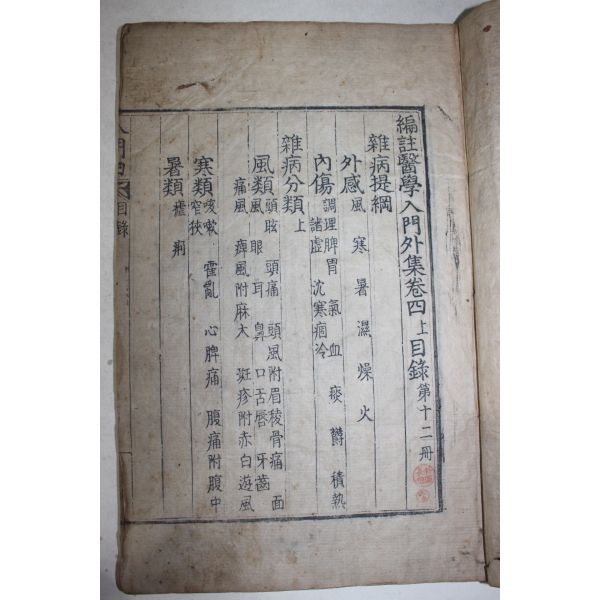 編註醫學入門外集卷四上目錄 第十二冊
雜病提綱
外感 風 寒 暑 濕 燥 火
內傷 調理脾胃 氣 血 痰 鬱 積熱
諸虛 沈寒痼冷
雜病分類 上
風類 頭眩 頭痛 頭風附眉稜骨痛 面
風 眼 耳 鼻 口舌唇 牙齒
痛風 痺風附麻木 斑疹附赤白遊風
寒類 咳嗽 霍亂 心脾痛 腹痛附腹中
窄狹
暑類 瘧 痢
入門 目錄